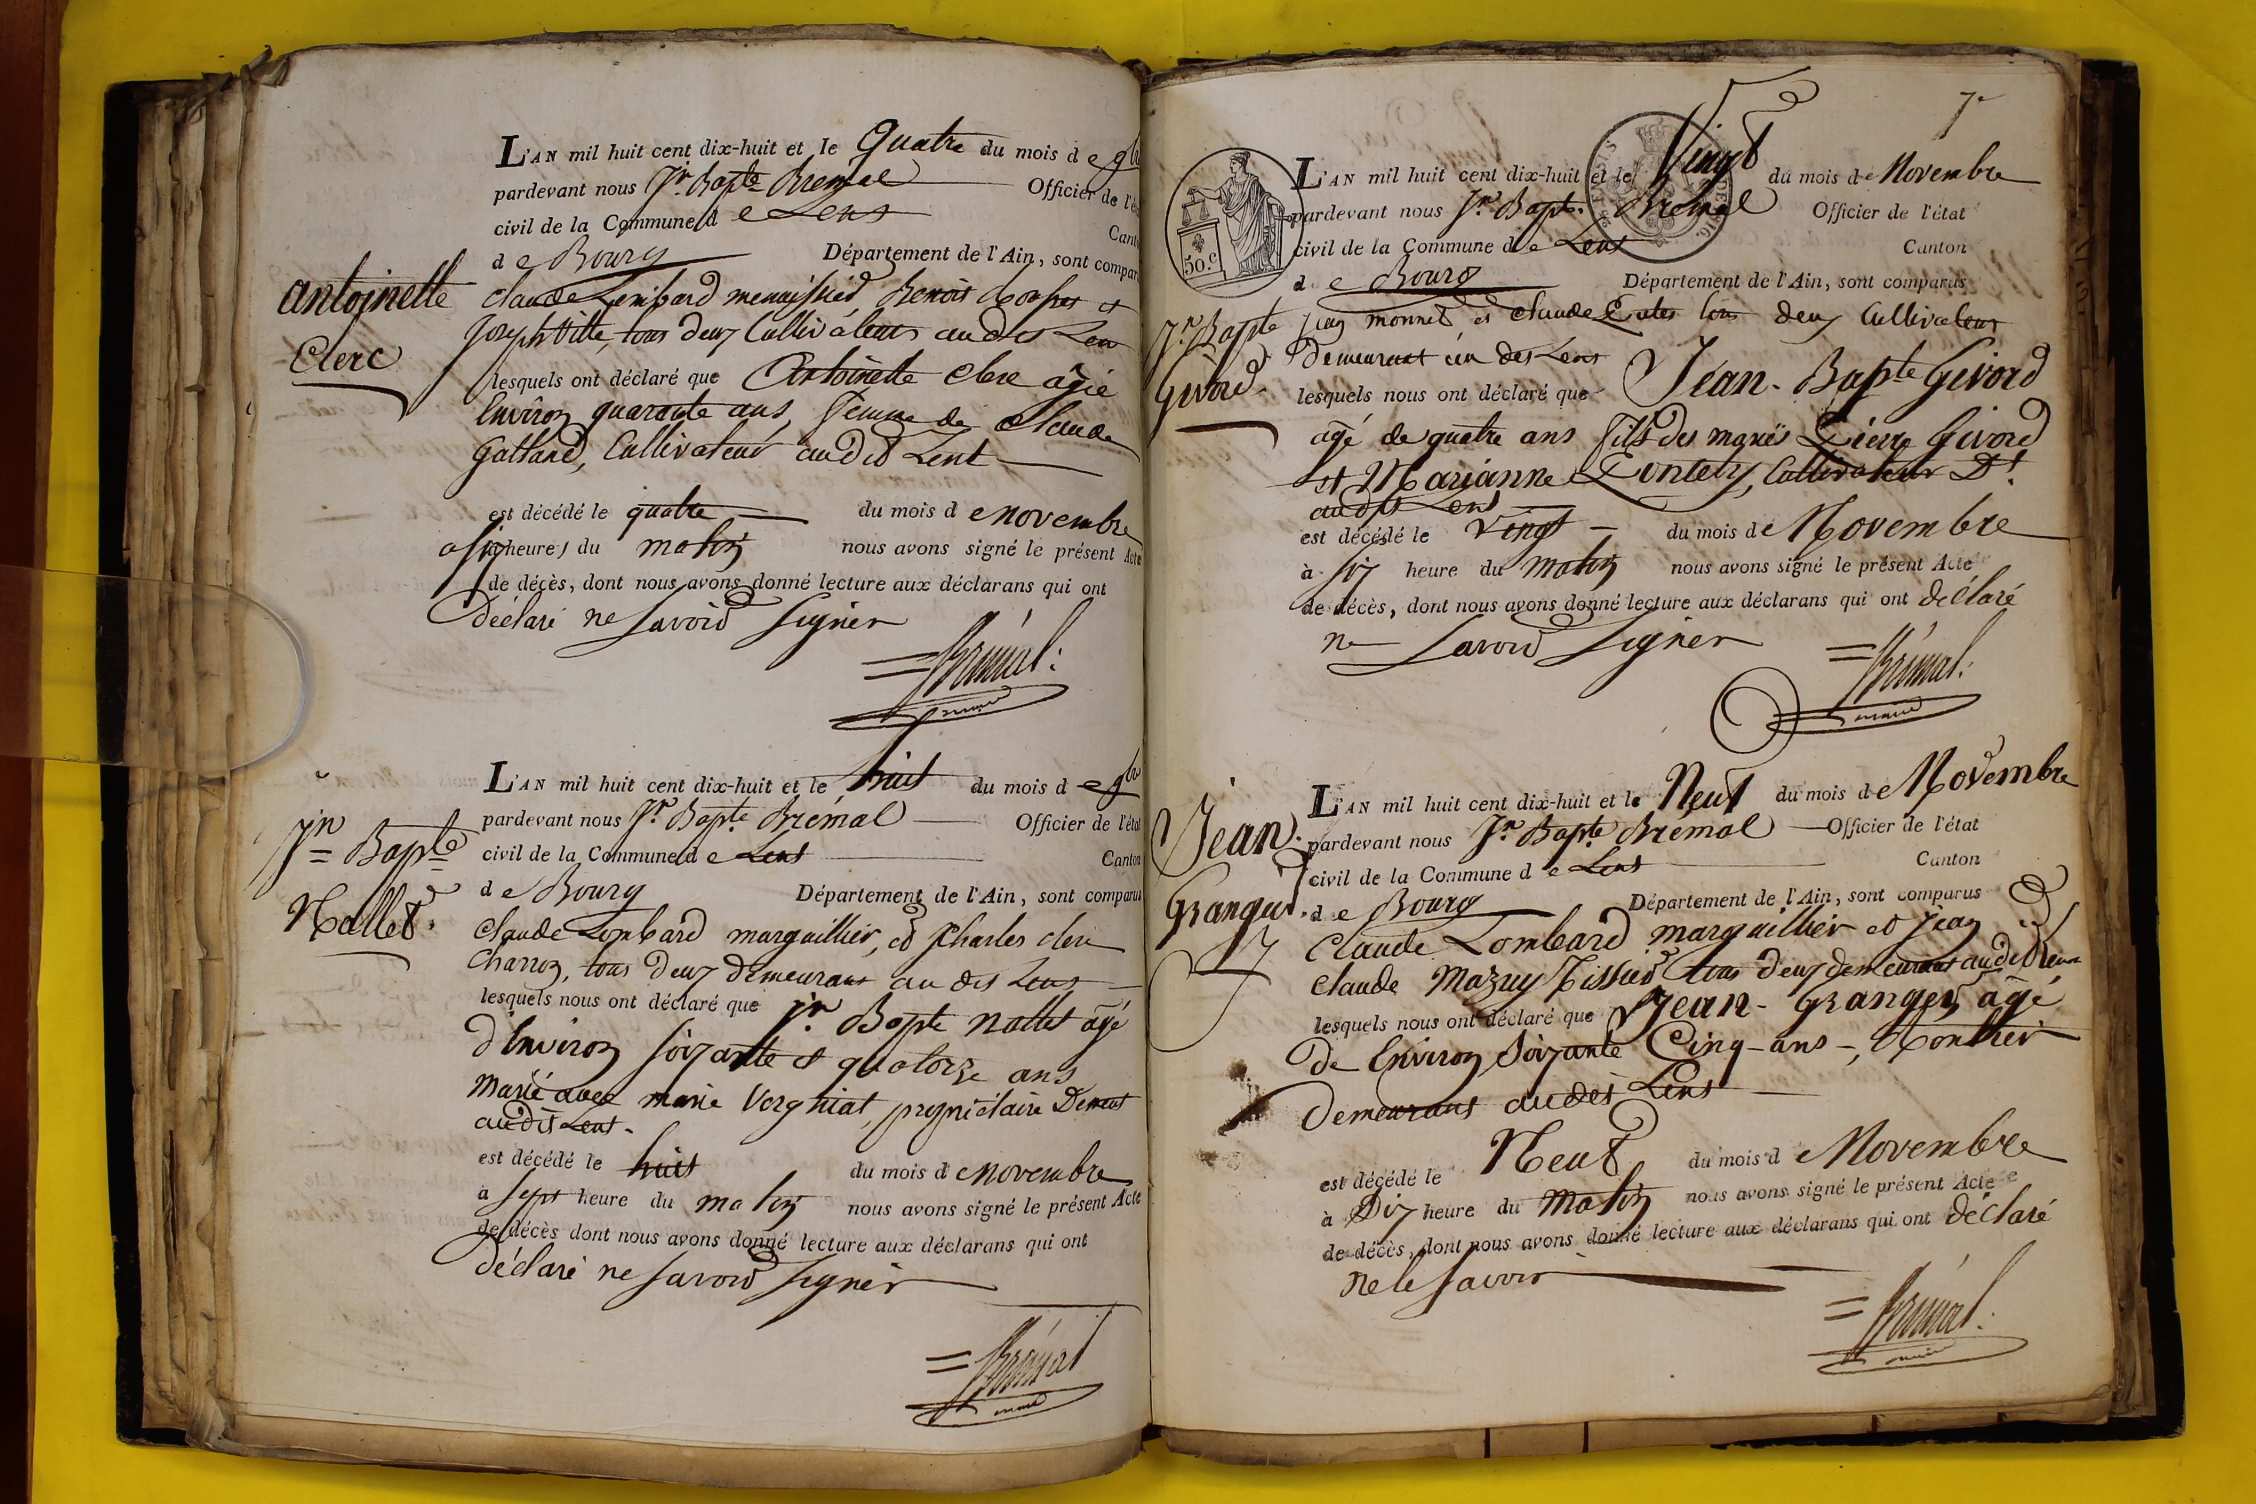 L'AN mil huit cent dix-huit et le Quatre du mois de 9bre
pardevant nous Jn Bapte Brémal Officier de l'état
civil de la Commune de Lent Canton
de Bourg Département de l'Ain, sont comparus
antoinette
Clerc
Claude Lombard menuisier, Benoit et
Joseph Ville, tous deux Cultivateurs audit Lent
lesquels ont déclaré que Antoinette Clerc âgée
Environ quarante ans, femme de Claude
Galland, Cultivateur audit Lent
est décédé le quatre du mois de novembre
a six heures du matin nous avons signé le présent Acte
de décès, dont nous avons donné lecture aux déclarans qui ont
Déclaré ne Savoir Signer
Brémal
maire
L'AN mil huit cent dix-huit et le huit du mois de 9bre
pardevant nous Jn Bapte Brémal Officier de l'état
civil de la Commune de Lent Canton
de Bourg Département de l'Ain, sont comparus
Jn Bapte
Nallet
Claude Lombard marguillier, et Charles clerc
Charron, tous deux demeurant audit Lent
lesquels nous ont déclaré que Jn Bapte nallet agé
d'Environ soixante et quatorze ans
marié avec marie Vergniat, propriétaire Demeut
audit Lent.
est décédé le huit du mois de novembre
à sept heure du matin nous avons signé le présent Acte
de décès dont nous avons donné lecture aux déclarans qui ont
déclaré ne savoir signer
Brémal
maire
7e
L'AN mil huit cent dix-huit et le Vingt du mois de Novembre
pardevant nous Jn Bapte Brémal Officier de l'état
civil de la Commune de Lent Canton
50.c
de Bourg Département de l'Ain, sont comparus
Jn Bapte
Givord
Jean monnet, et Claude tous deux Cultivateurs
Demeurant audit Lent
lesquels nous ont déclaré que Jean-Bapte Givord
agé de quatre ans fils des mariés Pierre Givord
et Marianne Cultivateur Dt
audit Lent
est décédé le vingt du mois de Novembre
à six heure du matin nous avons signé le présent Acte
de décès, dont nous avons donné lecture aux déclarans qui ont déclaré
ne Savoir Signer
Brémal
maire
L'AN mil huit cent dix-huit et le Neuf du mois de Novembre
pardevant nous Jn Bapte Brémal Officier de l'état
civil de la Commune de Lent Canton
de Bourg Département de l'Ain, sont comparus
Jean
Granger
Claude Lombard marguillier et Jean
Claude Mazuy Tissier tous deux demeurant audit Lent
lesquels nous ont déclaré que Jean-Granger agé
De Environ Soixante Cinq-ans
Demeurant audit Lent
est décédé le Neuf du mois de Novembre
à Dix heure du Matin nous avons signé le présent Acte
de décès, dont nous avons donné lecture aux déclarans qui ont déclaré
ne le savoir
Brémal
maire